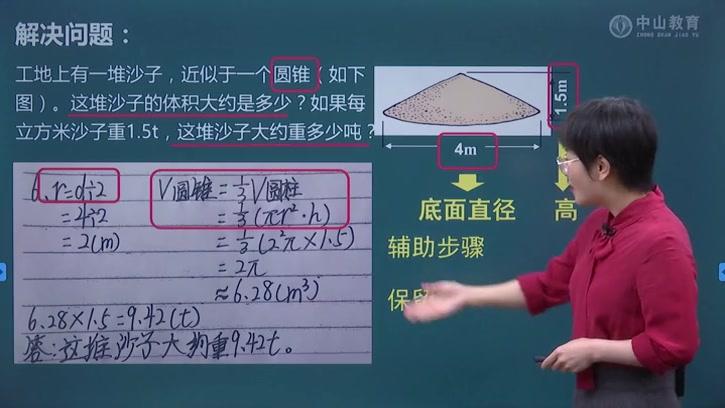 解决问题：
中山教育
ZHONG SHAN JIAO YU
工地上有一堆沙子，近似于一个圆锥（如下
图）。这堆沙子的体积大约是多少？如果每
立方米沙子重1.5t，这堆沙子大约重多少吨？
1.5m
4m
底面直径
高
辅助步骤
保留
6. r=d÷2
=4÷2
=2(m)
V圆锥=⅓V圆柱
=⅓(πr²·h)
=⅓(2²π×1.5)
=2π
≈6.28(m³)
6.28×1.5=9.42(t)
答:这堆沙子大约重9.42t。